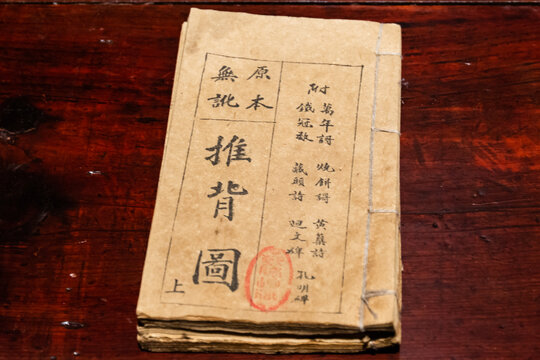 附
萬年謌 燒餅謌 黃蘗詩 孔明碑
鐵冠數 藏頭詩 迴文碑
原本
無訛
推背圖
上